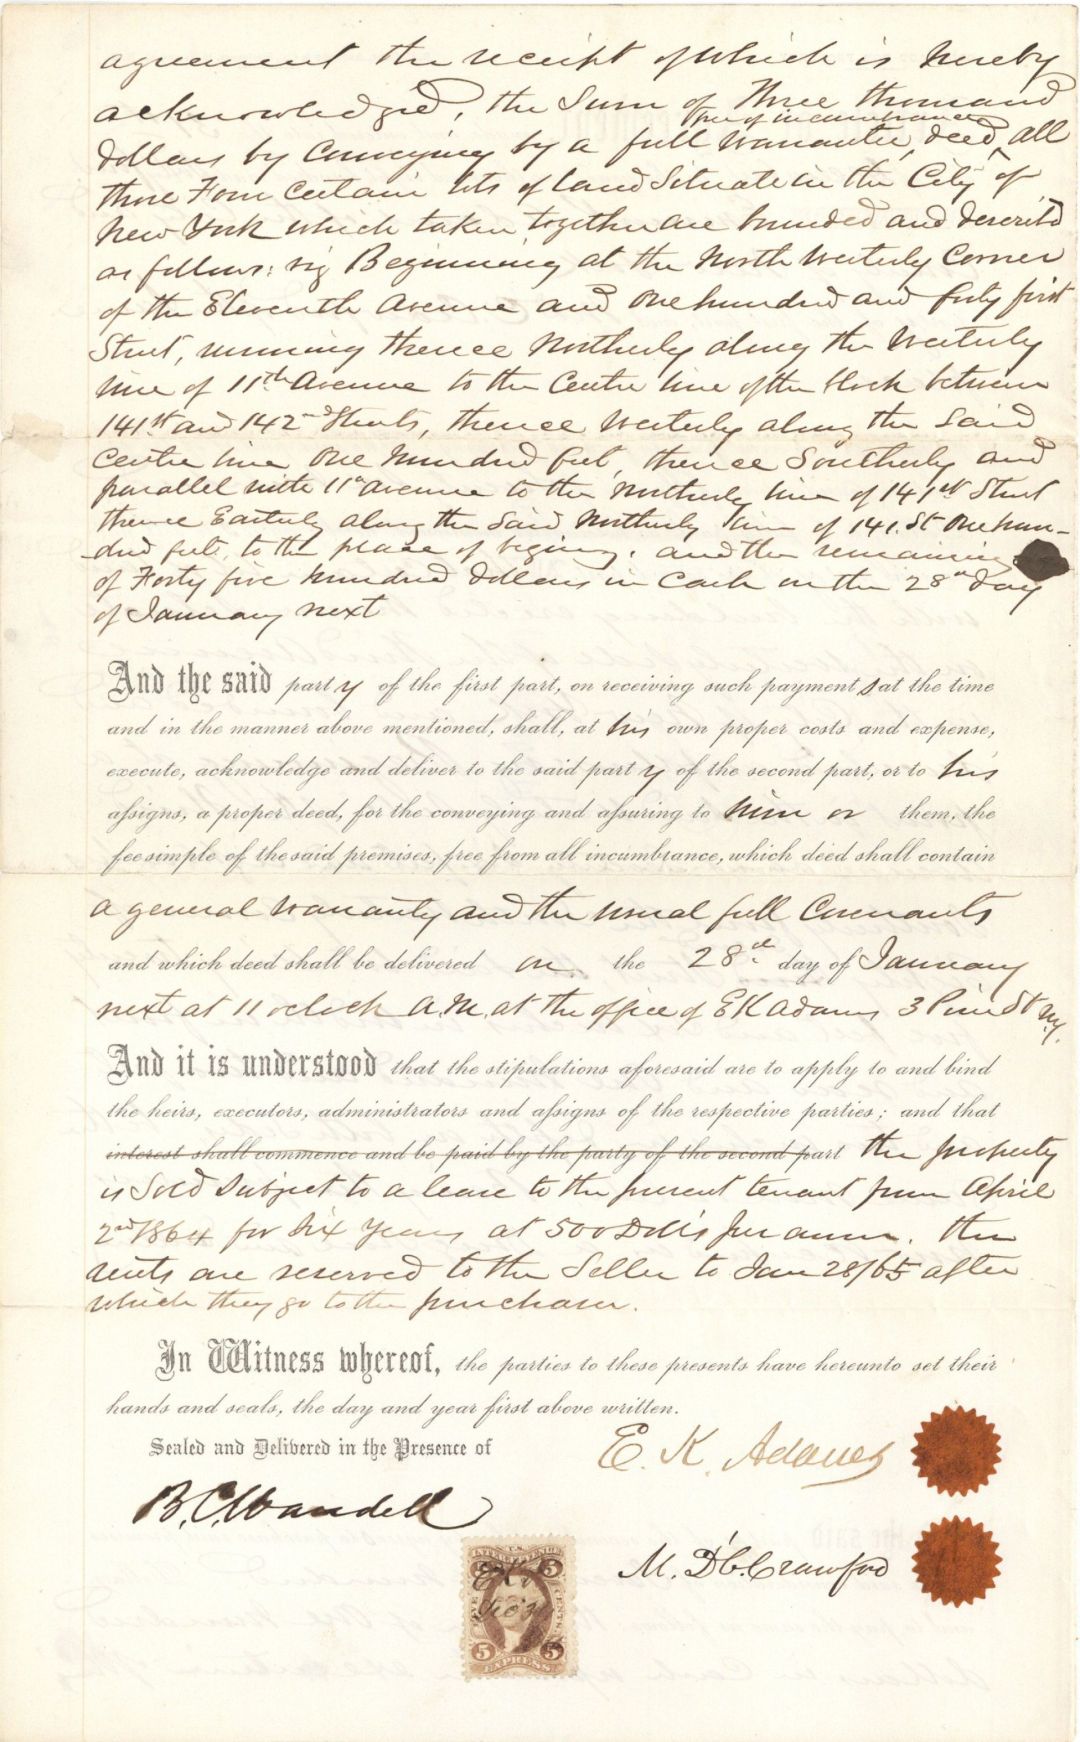 agreement the receipt of which is hereby
acknowledged, the Sum of Three thousand
free of incumbrance
dollars by Conveying by a full Warrantee deed, all
those Four Certain lots of land Situate in the City of
New York which taken together are bounded and describd
as follows: viz Beginning at the North Westerly Corner
of the Eleventh Avenue and One hundred and forty first
Street, running thence Northerly along the Westerly
line of 11th Avenue to the Centre line of the block between
141st and 142nd Streets, thence Westerly along the Said
Centre line One Hundred feet, thence Southerly and
parallel with 11th avenue to the Northerly line of 141st Street
thence Easterly along the Said Northerly line of 141. St One hun-
dred feet, to the place of begining. and the remaining
of Forty five hundred dollars in Cash on the 28th day
of January next
And the said party of the first part, on receiving such payments at the time
and in the manner above mentioned, shall, at his own proper costs and expense,
execute, acknowledge and deliver to the said party of the second part, or to his
assigns, a proper deed, for the conveying and assuring to him or them, the
fee simple of the said premises, free from all incumbrance, which deed shall contain
a general warranty and the usual full Covenants
and which deed shall be delivered on the 28th day of January
next at 11 oclock A.M. at the office of E K Adams 3 Pine St N.Y.
And it is understood that the stipulations aforesaid are to apply to and bind
the heirs, executors, administrators and assigns of the respective parties; and that
interest shall commence and be paid by the party of the second part the property
is Sold Subject to a lease to the present tenant from April
2nd 1864 for Six Years at 500 Dolls per annm. the
rents are reserved to the Seller to Jan 28/65 after
which they go to the purchaser.
In Witness whereof, the parties to these presents have hereunto set their
hands and seals, the day and year first above written.
Sealed and Delivered in the Presence of
E. K. Adams
B. C. Wandell
M. D'C. Crawford
5 5
EKA
5 5
EXPRESS